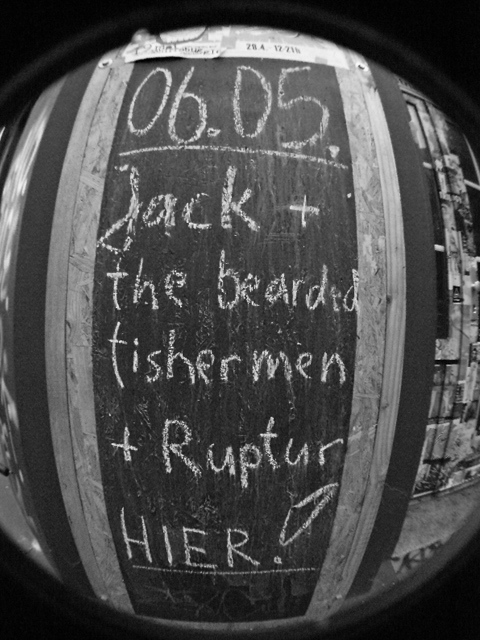 28.4. - 12-21h
06.05.
Jack +
the bearded
fishermen
+ Ruptur
HIER.